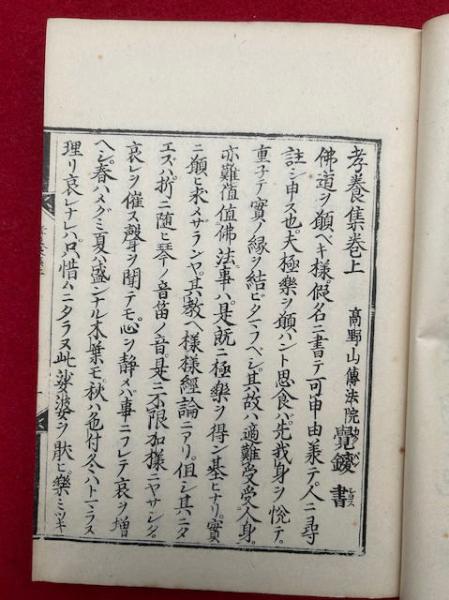 孝養集巻上
高野山傳法院覺鑁書
佛道ヲ願ベキ様假名ニ書テ可申由兼テ人ニ尋
註シ申ス也夫極樂ヲ願ハント思食バ先我身ヲ悦テ
重子テ實ノ縁ヲ結ビタマフベシ其故ハ適難受受人身
亦難値値佛法事ハ是既ニ極樂ヲ得ン基ヒナリ實
ニ願ヒ求メザランヤ其教ヘ様様經論ニアリ但シ其ニタ
エズハ折ニ随ヒ琴ノ音笛ノ音是ニ不限加様ニヤサシク
哀レヲ催ス聲ヲ聞テモ心ヲ静メバ事ニフレテ哀ヲ増
ベシ春ハメグミ夏ハ盛ンナル木葉モ秋ハ色付冬ハトマラヌ
理リ哀レナレバ只惜ムニタラヌ此娑婆ヲ猒ヒ樂ミツキ